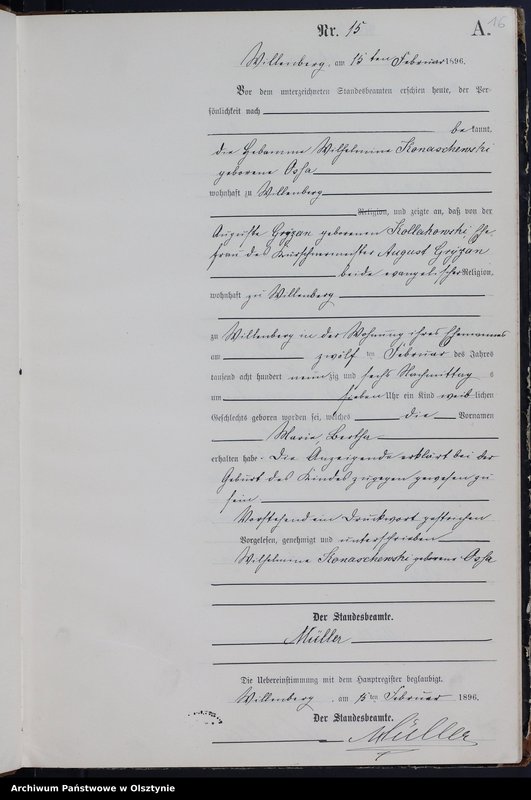 16
Nr. 15 A.
Willenberg, am 15 ten Februar 1896.
Vor dem unterzeichneten Standesbeamten erschien heute, der Per-
sönlichkeit nach
be kannt,
die Hebamme Wilhelmine Konaschewski
geborene Ossa
wohnhaft zu Willenberg
Religion, und zeigte an, daß von der
Auguste Gryzan geborenen Kollakowski Ehe-
frau des Kürschnermeister August Gryzan
beide evangelischer Religion,
wohnhaft zu Willenberg
zu Willenberg in der Wohnung ihres Ehemannes
am zwölf ten Februar des Jahres
tausend acht hundert neunzig und sechs Nachmittag s
um sieben Uhr ein Kind weib lichen
Geschlechts geboren worden sei, welches die Vornamen
Marie, Bertha
erhalten habe. Die Anzeigende erklärt bei der
Geburt des Kindes zugegen gewesen zu
sein
Vorstehend ein Druckwort gestrichen
Vorgelesen, genehmigt und unterschrieben
Wilhelmine Konaschewski geborene Ossa
Der Standesbeamte.
Müller
Die Uebereinstimmung mit dem Hauptregister beglaubigt.
Willenberg, am 15 ten Februar 1896.
Der Standesbeamte.
Müller
Archiwum Państwowe w Olsztynie